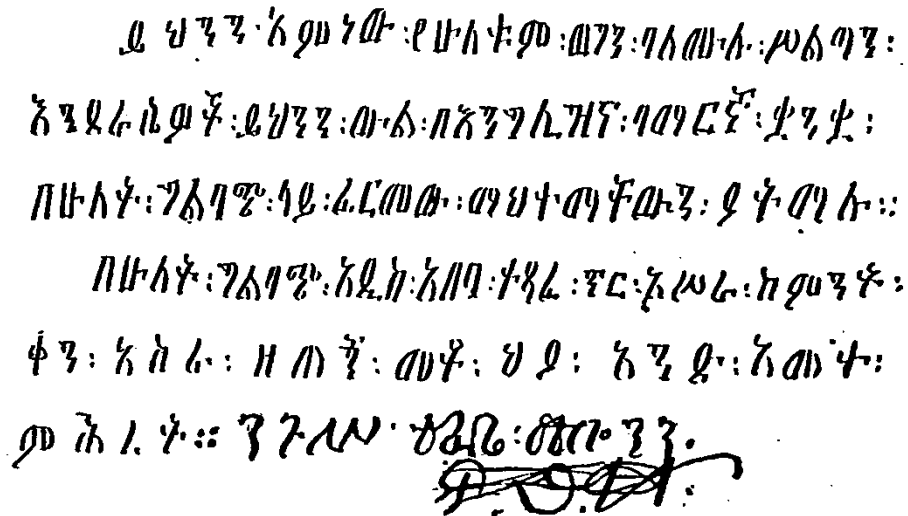 ይህንን፡አምነው፡የሁለቱም፡ወገን፡ባለሙሉ፡ሥልጣን፡
እንደራሴዎች፡ይህንን፡ውል፡በእንግሊዝና፡ባማርኛ፡ቋንቋ፡
በሁለት፡ግልባጭ፡ላይ፡ፈርመው፡ማህተማቸውን፡ያትማሉ።
በሁለት፡ግልባጭ፡አዲስ፡አበባ፡ተጻፈ፡አሥራ፡ስምንት፡
ቀን፡አስራ፡ዘጠኝ፡መቶ፡ህያ፡አንድ፡አመተ፡
ምሕረት። ንጉሥ፡ተፈሪ፡መኰንን.